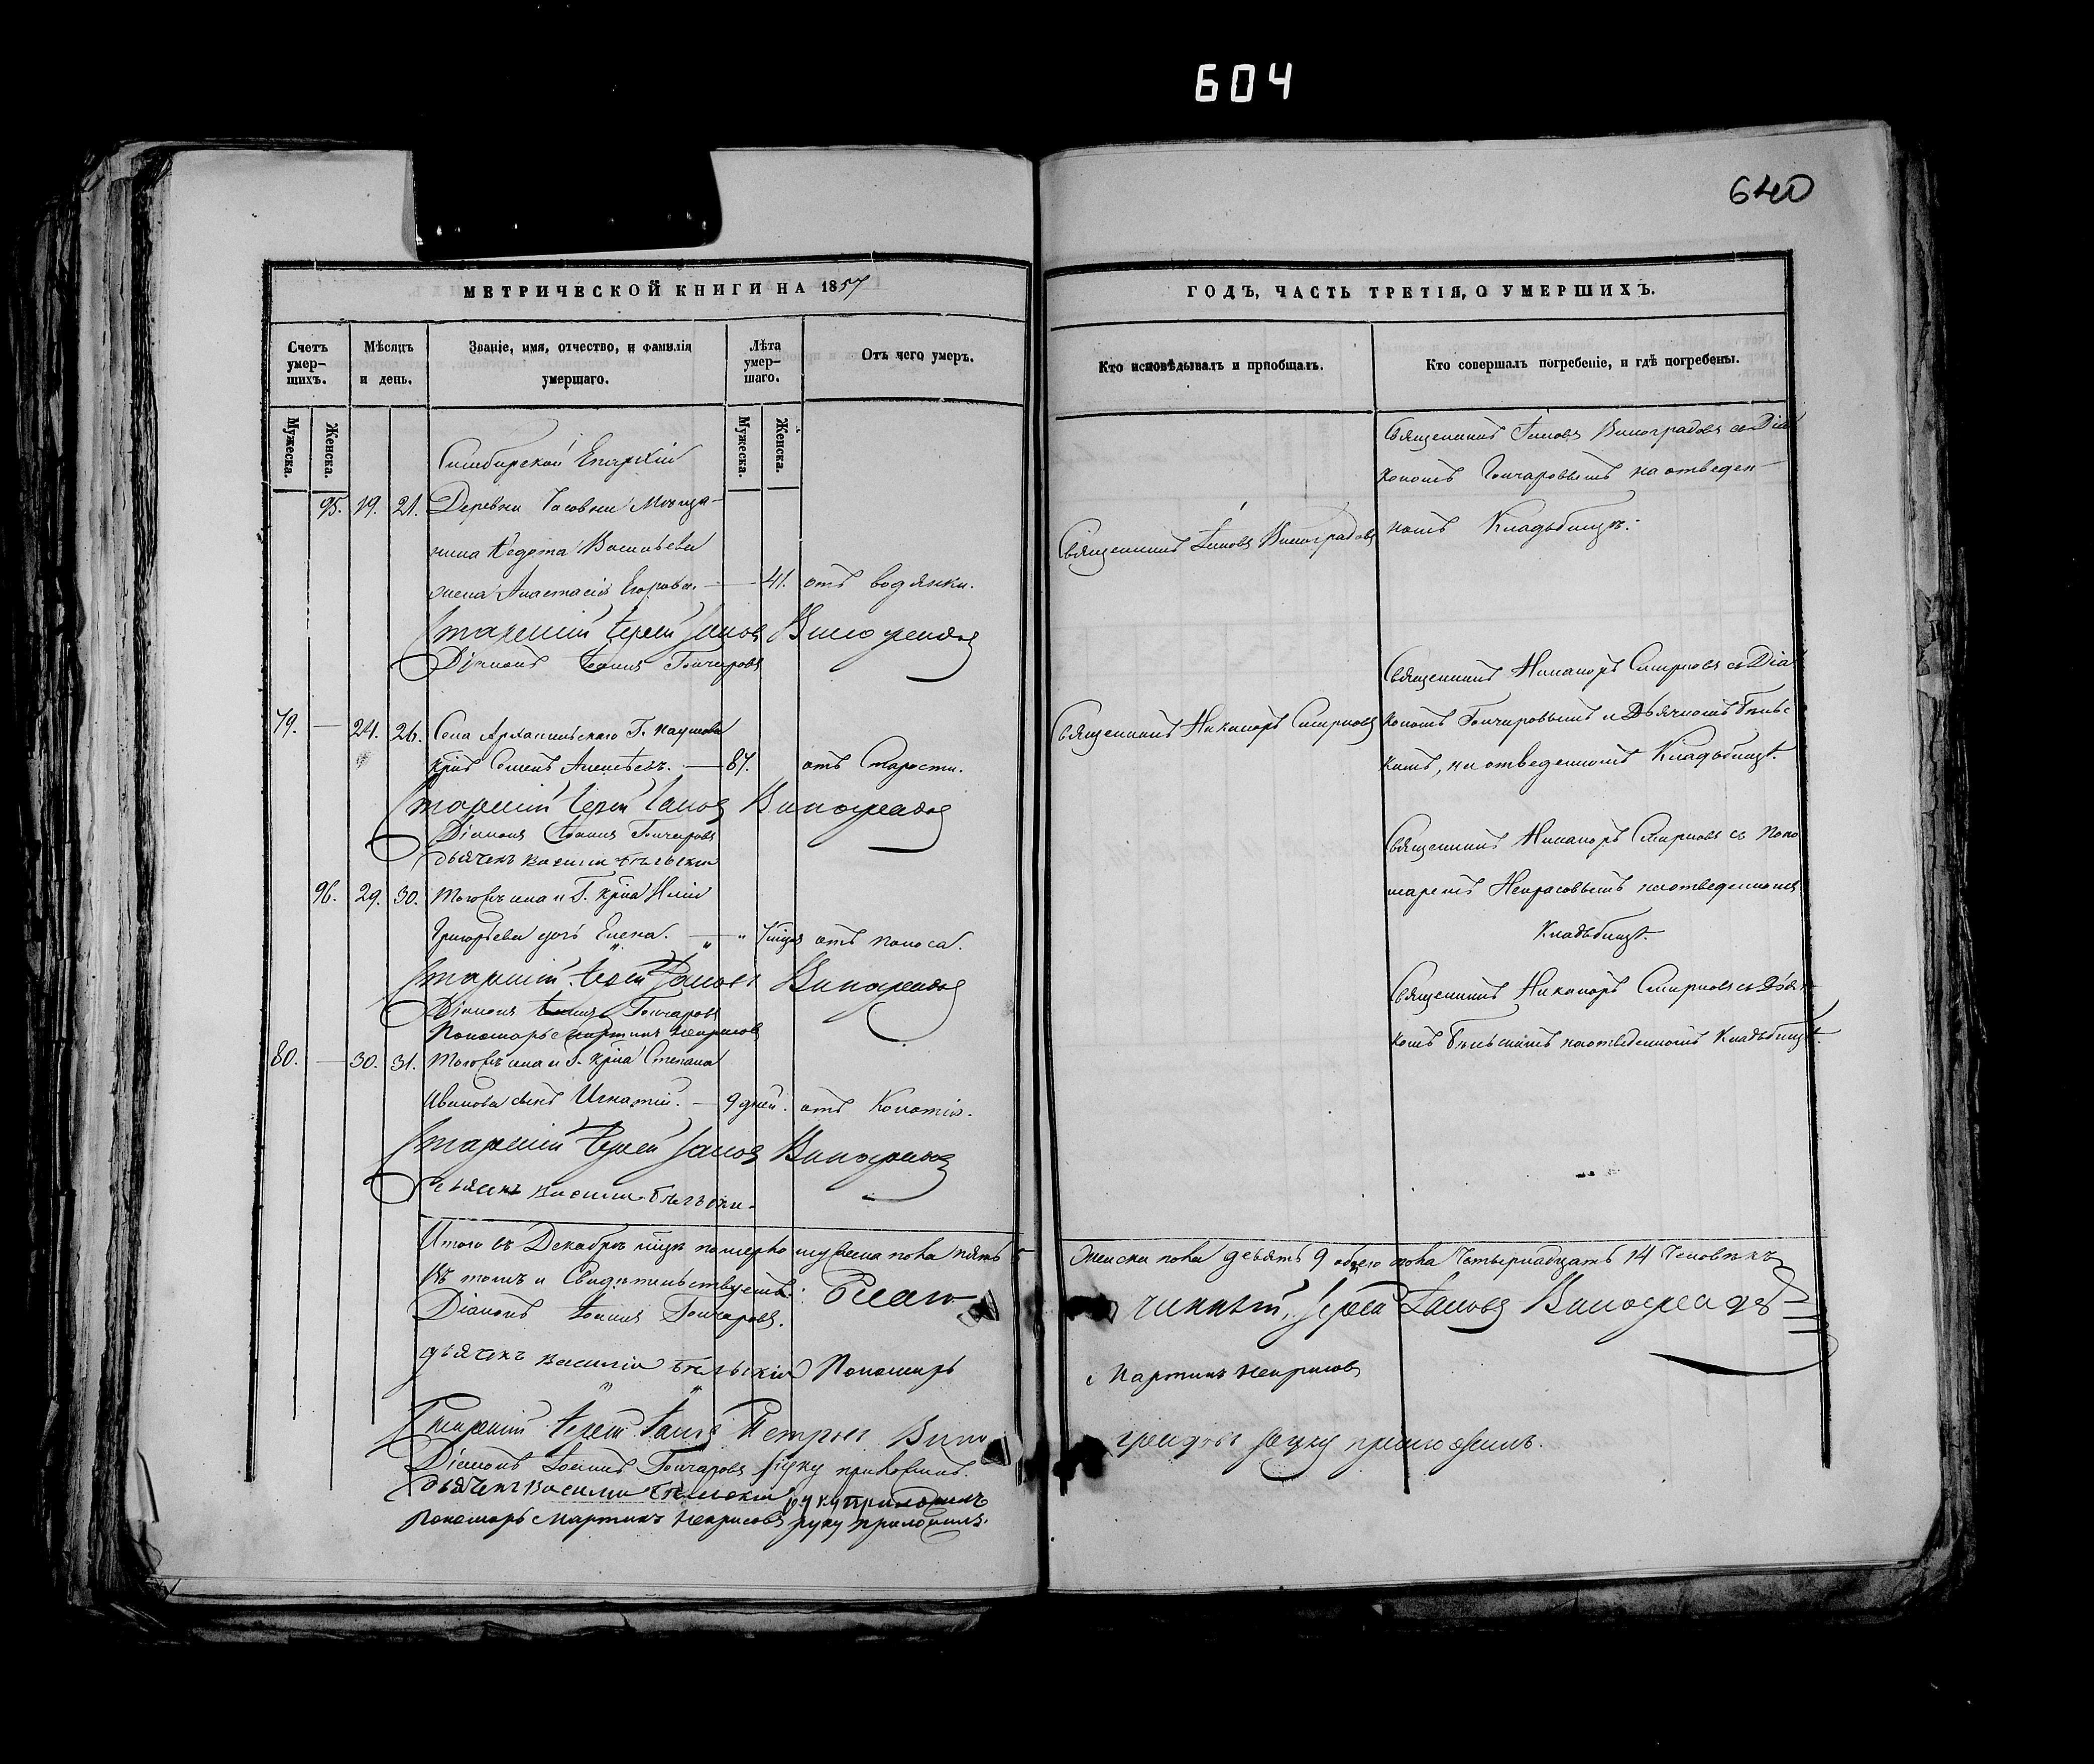 604
640
МЕТРИЧЕСКОЙ КНИГИ НА 1857
Счетъ умер-шихъ.
Мѣсяцъ и день.
Званіе, имя, отчество, и фамилія умершаго.
Лѣта умер-шаго.
Отъ чего умеръ.
Мужеска.
Женска.
Мужеска.
Женска.
Симбирской Епархіи
95. 19. 21. Деревни Часовни Мѣща-
нина Ѳедота Васильева
жена Анастасія Егорова. 41. отъ водянки.
Старшій Іерей Іаковъ Виноградовъ
Діаконъ Іоаннъ Гончаровъ
79. — 24. 26. Села Архангельскаго Г.
Семенъ Алексѣевъ. — 87. отъ Старости.
Старшій Іерей Іаковъ Виноградовъ
Діаконъ Іоаннъ Гончаровъ
дьячекъ Василій Бѣльскій
96. 29. 30. Тогожъ села и Г. крна
Григорьева дочь Елена. отъ поноса.
Старшій Іерей Іаковъ Виноградовъ
Діаконъ Іоаннъ Гончаровъ
Пономарь Мартинъ Некрасовъ
80. — 30. 31. Тогожъ села и Г. крна Степана
Иванова сынъ Игнатій. — 9 дней. отъ
Старшій Іерей Іаковъ Виноградовъ
дьячекъ Василій Бѣльскій.
Итого въ Декабрѣ мцѣ померло мужеска пола пять 5
Въ томъ и Свидѣтельствуетъ: Благо
Діаконъ Іоаннъ Гончаровъ.
дьячекъ Василій Бѣльскій Пономарь
Старшій Іерей Іаковъ Петровъ Вино
Діаконъ Іоаннъ Гончаровъ руку приложилъ.
дьячекъ Василій Бѣльскій руку приложилъ
Пономарь Мартинъ Некрасовъ руку приложилъ.
ГОДЪ, ЧАСТЬ ТРЕТІЯ, О УМЕРШИХЪ.
Кто исповѣдывалъ и пріобщалъ.
Кто совершалъ погребеніе, и гдѣ погребены.
Священникъ Іаковъ Виноградовъ
Священникъ Іаковъ Виноградовъ съ Діа
кономъ Гончаровымъ на отведен-
номъ Кладбищѣ.
Священникъ Никаноръ Смирновъ
Священникъ Никаноръ Смирновъ съ Діа
кономъ Гончаровымъ и Дьячкомъ Бѣльс
кимъ, на отведенномъ Кладбищѣ.
Священникъ Никаноръ Смирновъ съ Поно
маремъ Некрасовымъ на отведенномъ
Кладбищѣ.
Священникъ Никаноръ Смирновъ съ Дьяч
комъ Бѣльскимъ на отведенномъ Кладбищѣ.
Женска пола девять 9 обоего пола Четырнадцать 14 Человѣкъ
чинный, Іерей Іаковъ Виноградовъ
Мартинъ Некрасовъ
градовъ руку приложилъ.